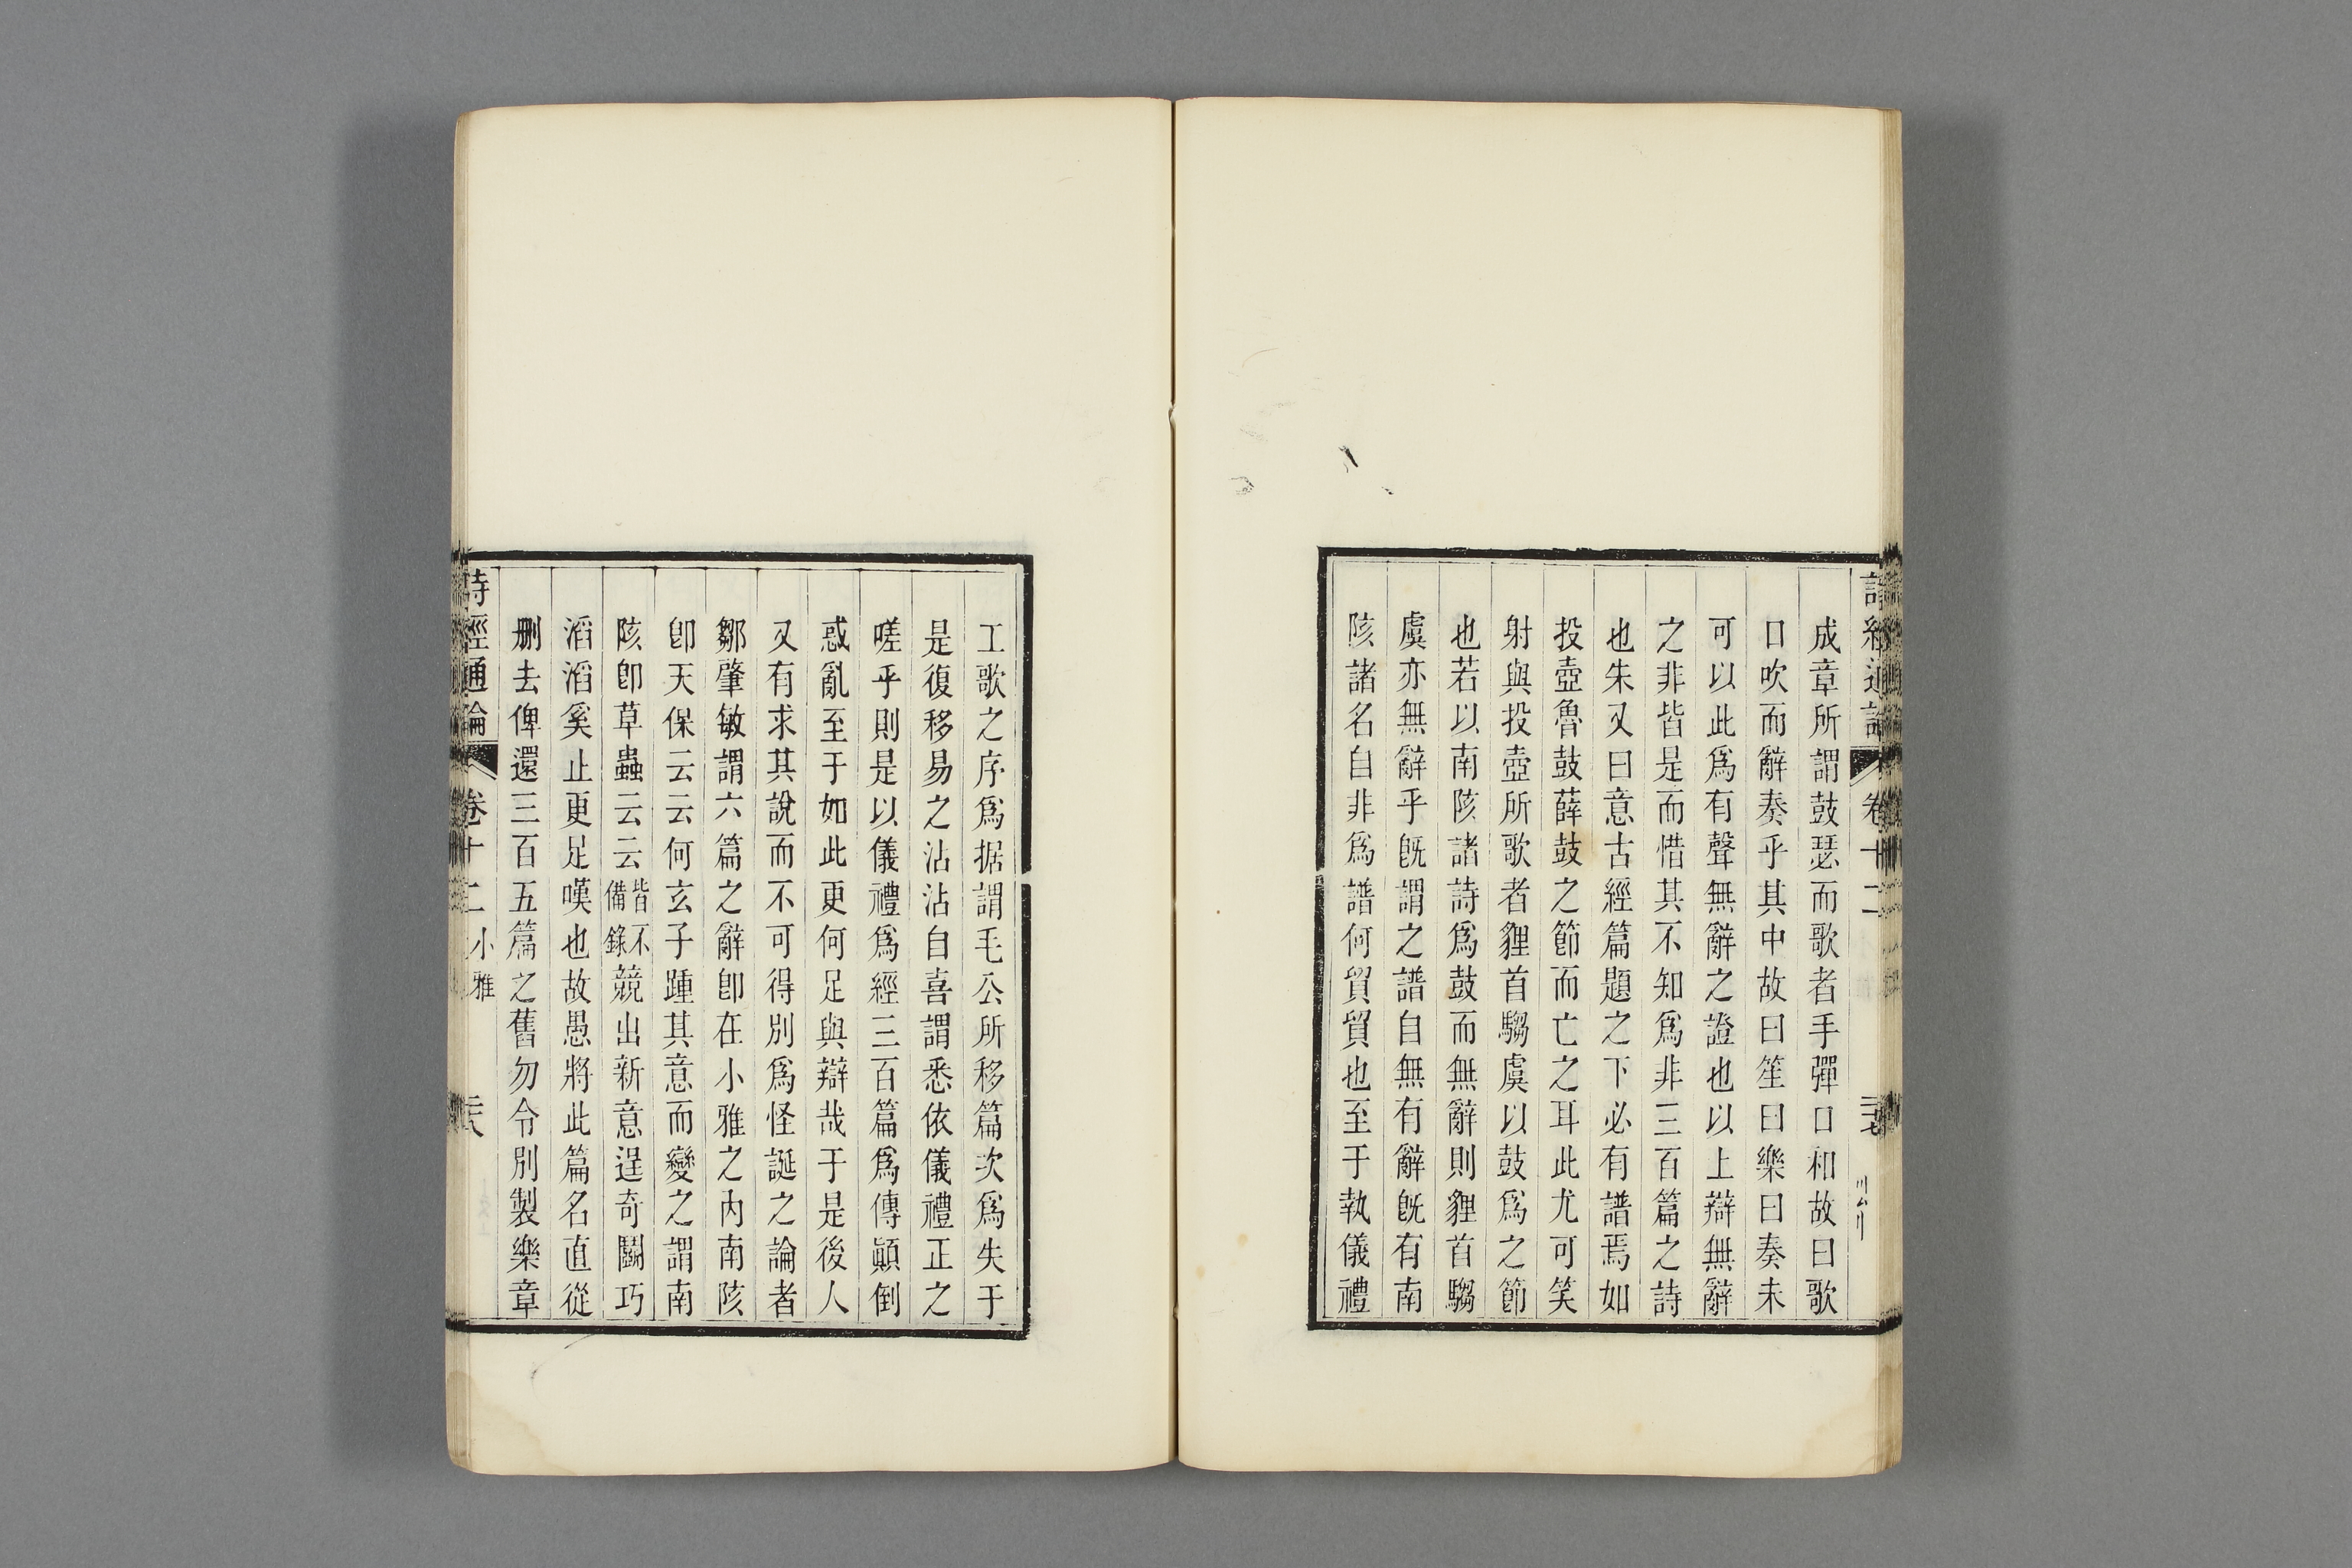 成章所謂鼓瑟而歌者手彈口和故曰歌
口吹而辭奏乎其中故曰笙曰樂曰奏未
可以此爲有聲無辭之證也以上辯無辭
之非皆是而惜其不知爲非三百篇之詩
也朱又曰意古經篇題之下必有譜焉如
投壺魯鼓薛鼓之節而亡之耳此尤可笑
射與投壺所歌者貍首騶虞以鼓爲之節
也若以南陔諸詩爲鼓而無辭則貍首騶
虞亦無辭乎旣謂之譜自無有辭旣有南
陔諸名自非爲譜何貿貿也至于執儀禮
工歌之序爲据謂毛公所移篇次爲失于
是復移易之沾沾自喜謂悉依儀禮正之
嗟乎則是以儀禮爲經三百篇爲傳顚倒
惑亂至于如此更何足與辯哉于是後人
又有求其說而不可得別爲怪誕之論者
鄒肇敏謂六篇之辭卽在小雅之內南陔
卽天保云云何玄子踵其意而變之謂南
陔卽草蟲云云皆不備錄競出新意逞奇鬭巧
滔滔奚止更足嘆也故愚將此篇名直從
删去俾還三百五篇之舊勿令別製樂章
詩經通論 卷十二 小雅 二六